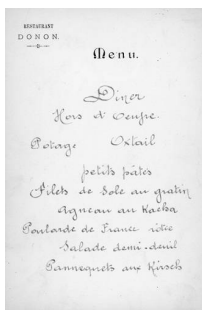 RESTAURANT
DONON.
Menu.
Diner
Hors d'oeuvre.
Potage Oxtail
petits pâtés
Filets de Sole au gratin
Agneau au Kacha
Poularde de France rôtie
Salade demi-deuil
Pannequets aux Kirsch